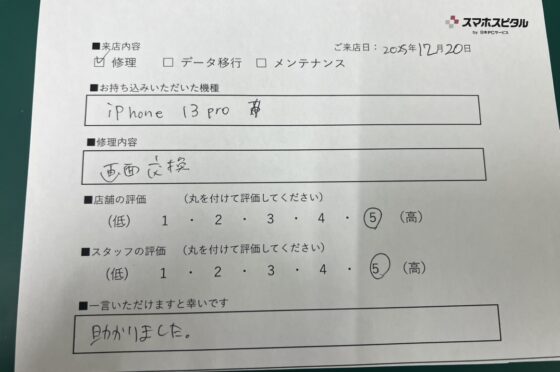 スマホスピタル
by 日本PCサービス
■来店内容
ご来店日：2025年12月20日
☑ 修理 □ データ移行 □ メンテナンス
■お持ち込みいただいた機種
iPhone 13 pro
■修理内容
画面交換
■店舗の評価 （丸を付けて評価してください）
（低） 1 ・ 2 ・ 3 ・ 4 ・ 5 （高）
■スタッフの評価 （丸を付けて評価してください）
（低） 1 ・ 2 ・ 3 ・ 4 ・ 5 （高）
■一言いただけますと幸いです
助かりました。